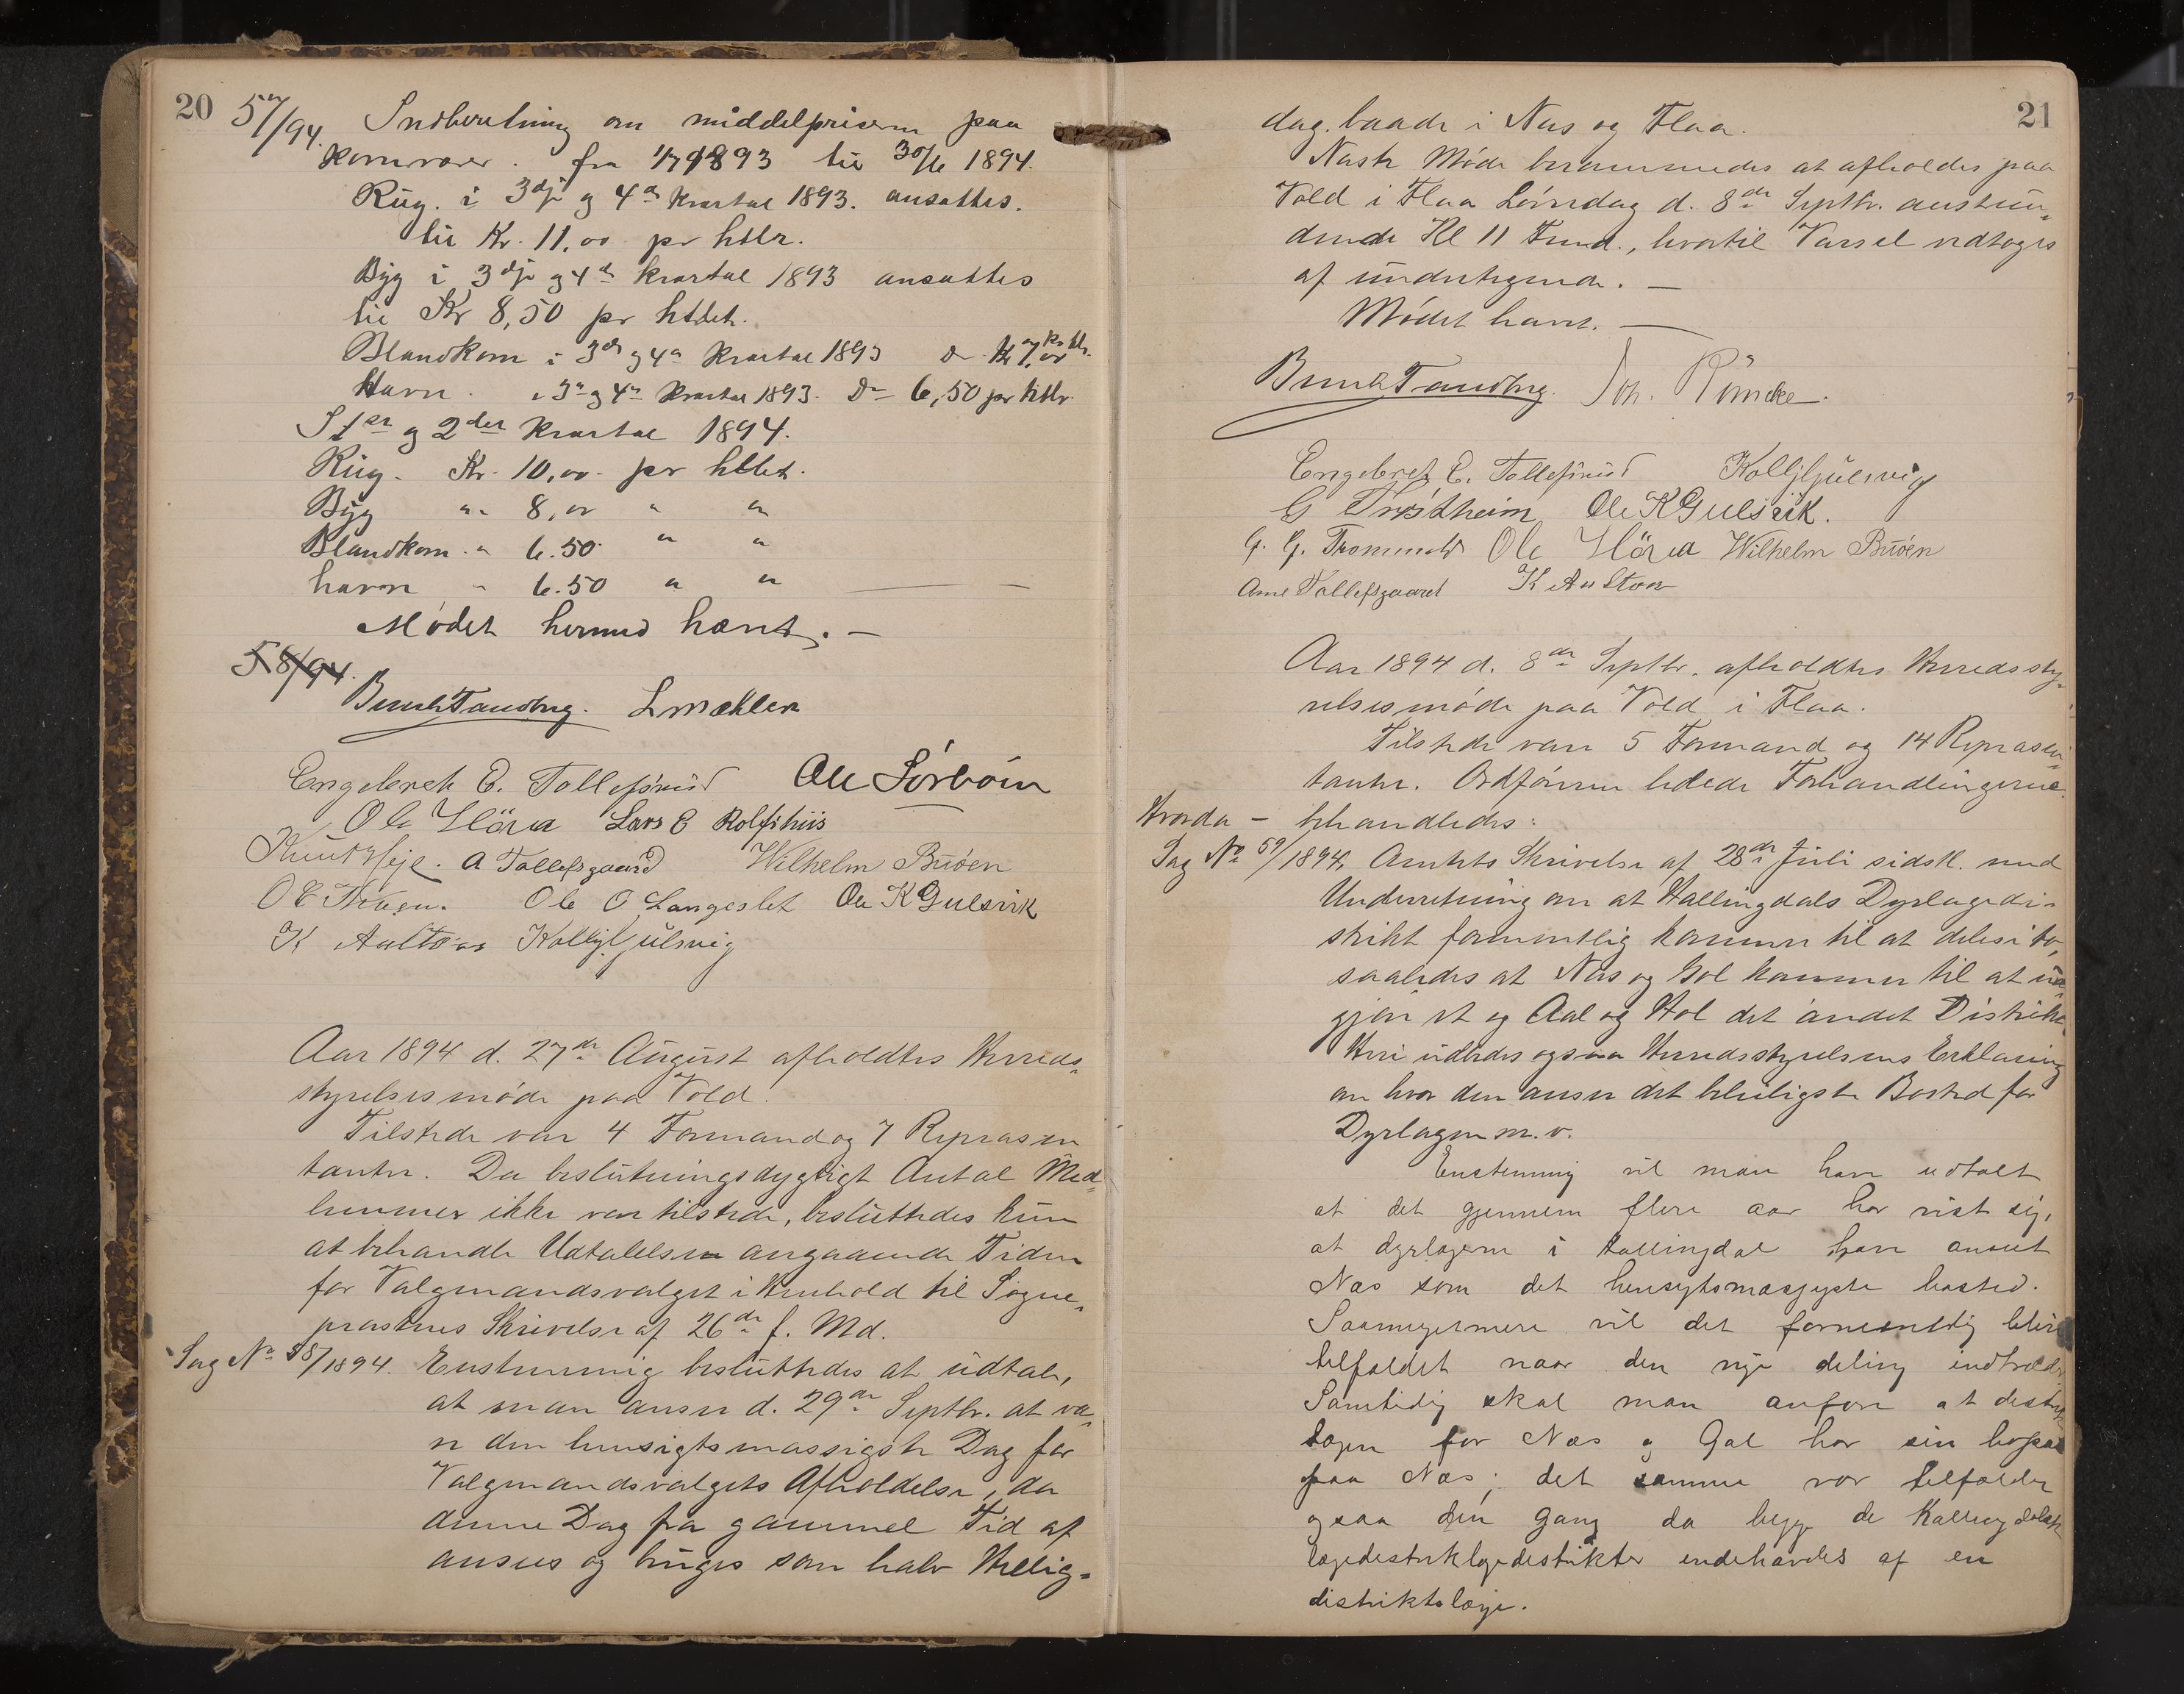 20
57/94. Indberetning om middelprisern paa
kornvarer. fra 1/7 1893 til 30/6 1894.
Rug. i 3dje og 4de kvartal 1893. ansattes.
til Kr. 11,00 pr htlr.
Byg i 3dje og 4de kvartal 1893 ansattes
til Kr 8,50 pr htlet.
Blandkorn i 3de og 4de kvartal 1893 do Kr 7,00 pr htl.
Havre i 3de og 4de kvartal 1893. Do 6,50 pr htlr.
I 1ste og 2det kvartal 1894.
Rug. Kr. 10,00 pr htlet.
Byg " 8,00 " "
Blandkorn " 6.50 " "
havre " 6.50 " "
Mødet hermed hævet. —
58/94.
Bernh Tandberg. L Mæhlen
Engebret E. Tollefsrud Ole Sörboin
Ole Höva Lars E Rolfshus
Knut Heje. A Tollefsgaard Wilhelm Bråen
Ole O Langeslet Ole K Gulsvik
K Aaltoen Kolbj. Gjulsvig
Aar 1894 d. 27de August afholdtes Herreds-
styrelsesmøde paa Vold.
Tilstede var 4 Formænd og 7 Repræsen
tanter. Da beslutningsdygtigt Antal Med-
lemmer ikke var tilstede, besluttedes kun
at behandle Udtalelsen angaaende Tiden
for Valgmandsvalget i Henhold til Sogne-
præstens Skrivelse af 26de f. Md.
Sag No 58/1894. Enstemmig besluttedes at udtale,
at man anser d. 29de Septbr. at væ-
re den hensigtsmæssigste Dag for
Valgmandsvalgets Afholdelse, da
denne Dag fra gammel Tid af
ansees og bruges som halv Hellig-
21
dag. baade i Næs og Flaa.
Næste Møde berammedes at afholdes paa
Vold i Flaa Lørdag d. 8de Septbr. anstun-
dende Kl 11 Fmd., hvortil Varsel vedtoges
af undertegnede. —
Mødet hævet. —
Bernh Tandberg. Joh. Römcke.
Engebret E. Tollefsrud Kolbj Gjulsvig
G Trøstheim Ole K Gulsvik.
G. G. Tromunld Ole Höva Wilhelm Bråen
Arne Tollefsgaard K Aaltoen
Aar 1894 d. 8de Septbr. afholdtes Herredssty-
relsesmøde paa Vold i Flaa.
Tilstede vare 5 Formænd og 14 Repræsen-
tanter. Ordføreren ledede Forhandlingerne.
Hvorda — behandledes:
Sag No 59/1894. Amtets Skrivelse af 28de Juli sidstl. med
Underretning om at Hallingdals Dyrlægedi-
strikt formentlig kommer til at deles i to,
saaledes at Næs og Gol kommer til at ud-
gjøre et og Aal og Hol det andet Distrikt.
Heri udbedes ogsaa Herredsstyrelsens Erklæring
om hvor den anser det beleiligste Bosted for
Dyrlægen m. v.
Enstemmig vil man have udtalt
at det gjennem flere aar har vist sig,
at dyrlægerne i Hallingdal have anseet
Næs som det hensigtsmæssigste bosted.
Saameget mere vil det formentlig blive
tilfældet naar den nye deling indtræder.
Samtidig skal man anføre at distrikts
lægen for Næs og Gol har sin bopæl
paa Næs; det samme var tilfældet
ogsaa den gang da begge de Hallingdalske
lægedistriktlægedistrikter indehavdes af en
distriktslæge.